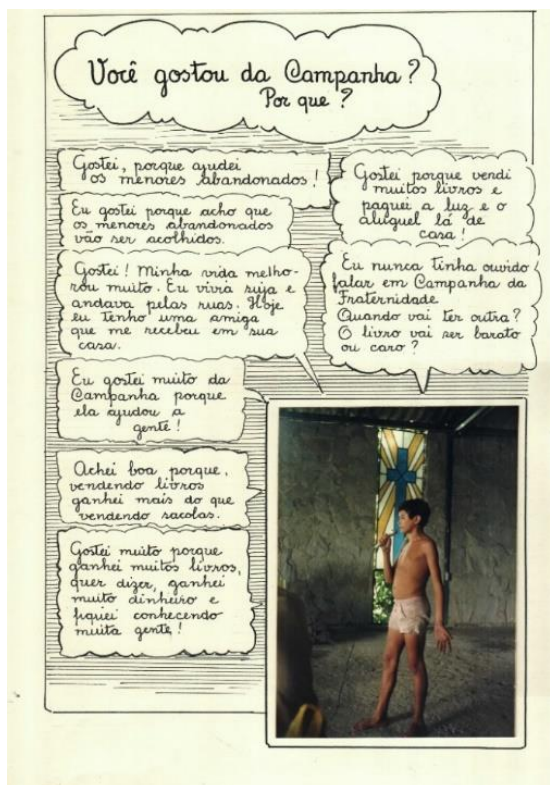 Você gostou da Campanha?
Por que?
Gostei, porque ajudei
os menores abandonados!
Eu gostei porque acho que
os menores abandonados
vão ser acolhidos.
Gostei! Minha vida melho-
rou muito. Eu vivia suja e
andava pelas ruas. Hoje
eu tenho uma amiga
que me recebeu em sua
casa.
Eu gostei muito da
Campanha porque
ela ajudou a
gente!
Achei boa porque,
vendendo livros
ganhei mais do que
vendendo sacolas.
Gostei muito porque
ganhei muitos livros,
quer dizer, ganhei
muito dinheiro e
fiquei conhecendo
muita gente!
Gostei porque vendi
muitos livros e
paguei a luz e o
aluguel lá de
casa!
Eu nunca tinha ouvido
falar em Campanha da
Fraternidade
Quando vai ter outra?
O livro vai ser barato
ou caro?